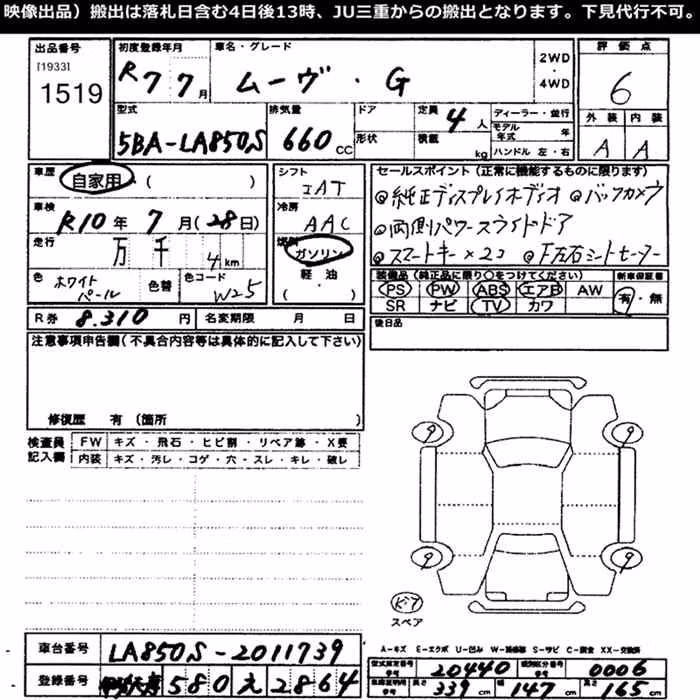 映像出品）搬出は落札日含む4日後13時、JU三重からの搬出となります。下見代行不可。
出品番号 初度登録年月 車名・グレード 2WD・4WD 評価点
[1933] 1519 R7 7月 ムーヴ・G 6
型式 排気量 ドア 定員 4人 ディーラー・並行 外装 内装
5BA-LA850S 660cc 形状 積載 kg モデル年式 年 ハンドル 左・右 A A
車歴 自家用 ( ) シフト IAT セールスポイント（正常に機能するものに限ります）
車検 R10年 7月(28日) 冷房 AAC ◎純正ディスプレイオーディオ ◎バックカメラ
走行 万 千 4km 燃料 ガソリン ◎両側パワースライドドア
軽・油 ( ) ◎スマートキー×2コ
色 ホワイトパール 色替 色コード W25
装備品（純正品に限り○をつけてください） 新車保証書
PS PW ABS エアB AW 有・無
SR ナビ TV カワ
R券 8.310円 名変期限 月 日 後日品
注意事項申告欄（不具合内容等は具体的に記入して下さい）
修復歴 有（箇所 ）
検査員記入欄 FW キズ・飛石・ヒビ割・リペア跡・X要
内装 キズ・汚レ・コゲ・穴・スレ・キレ・破レ
9 9
9 9
スペア
A-キズ E-エクボ U-凹み W-補修跡 S-サビ C-腐食 XX-交換済
車台番号 LA850S-2011739
型式指定番号 20440 類別区分番号 0006
登録番号 580 え 2864
長さ 339cm 幅 147cm 高さ 165cm